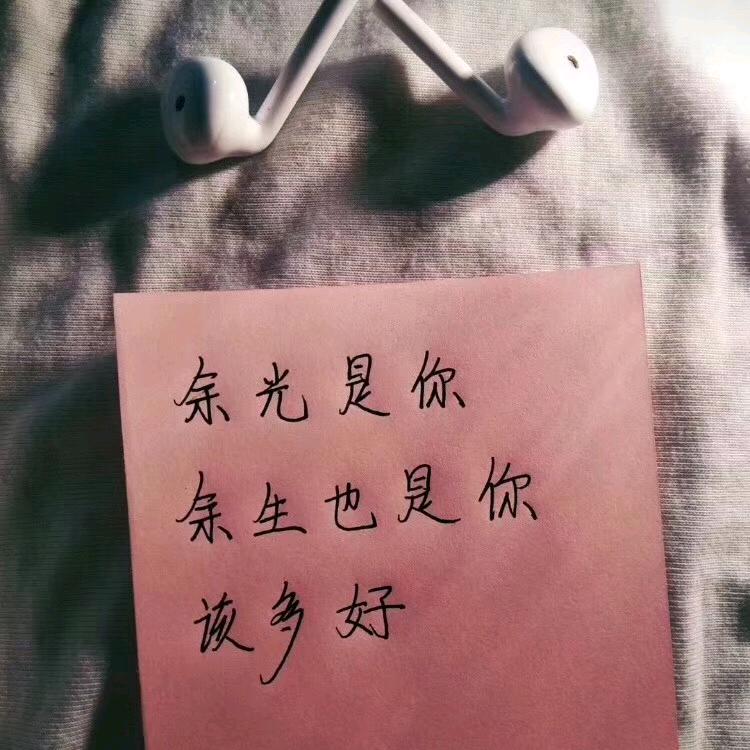 余光是你
余生也是你
该多好